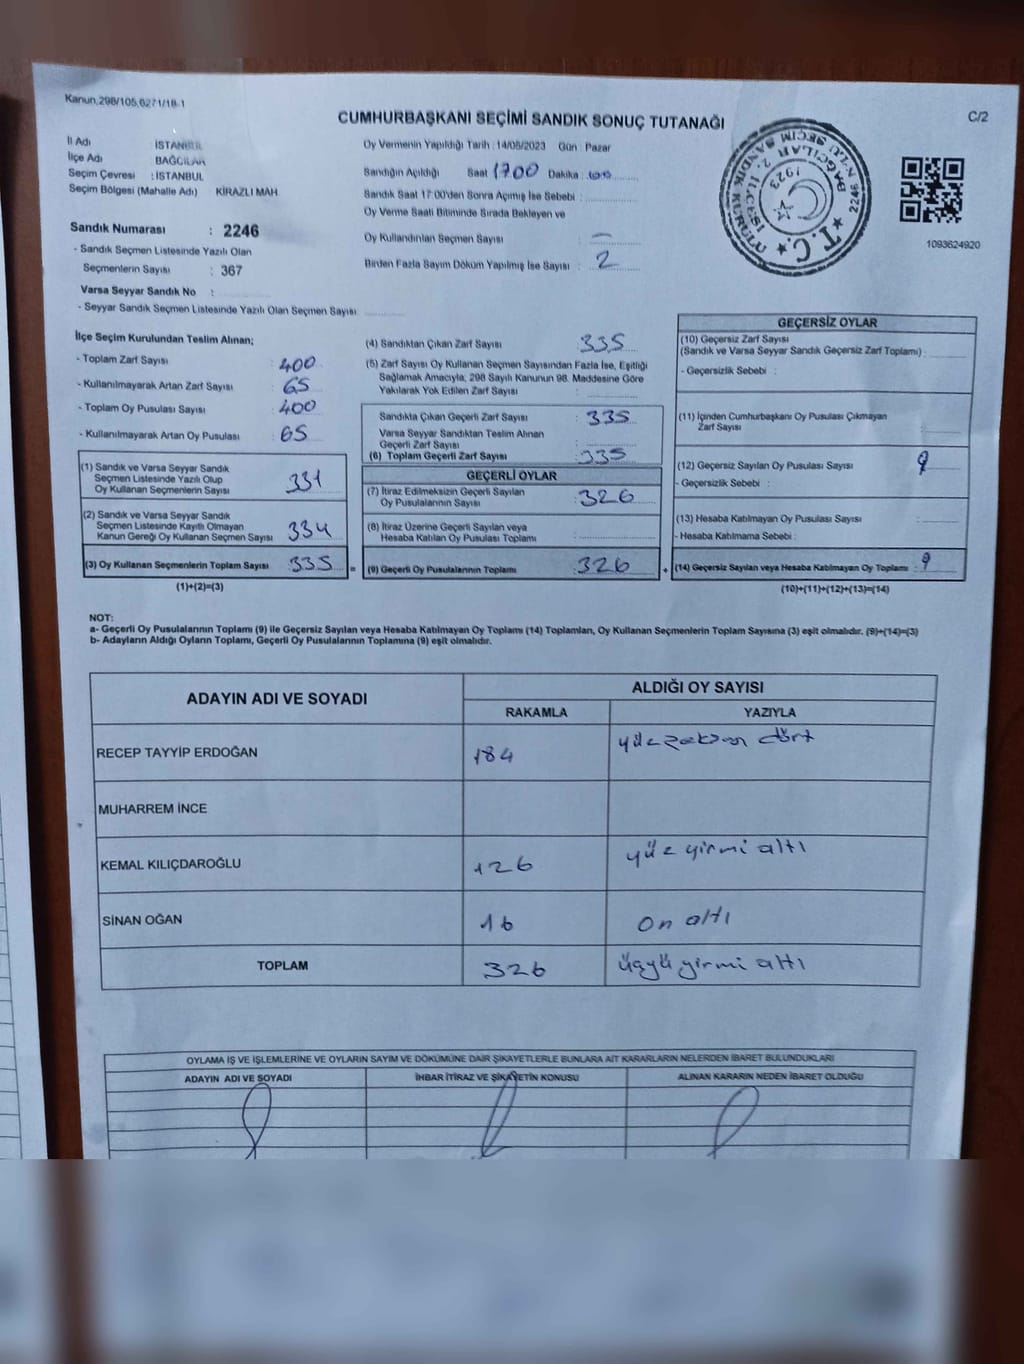 Kanun,298/105,6271/18-1
C/2
CUMHURBAŞKANI SEÇİMİ SANDIK SONUÇ TUTANAĞI
İl Adı İSTANBUL
İlçe Adı BAĞCILAR
Seçim Çevresi : İSTANBUL
Seçim Bölgesi (Mahalle Adı) KİRAZLI MAH.
Sandık Numarası : 2246
- Sandık Seçmen Listesinde Yazılı Olan
Seçmenlerin Sayısı : 367
Varsa Seyyar Sandık No :
- Seyyar Sandık Seçmen Listesinde Yazılı Olan Seçmen Sayısı
Oy Vermenin Yapıldığı Tarih : 14/05/2023 Gün : Pazar
Sandığın Açıldığı Saat 1700 Dakika :
Sandık Saat 17:00'den Sonra Açımış İse Sebebi :
Oy Verme Saati Bitiminde Sırada Bekleyen ve
Oy Kullandırılan Seçmen Sayısı : —
Birden Fazla Sayım Döküm Yapılmış İse Sayısı : 2
T.C.
BAĞCILAR 2. İLÇESİ
2246 N.'LU SEÇİM
SANDIK KURULU
1923
1093624920
İlçe Seçim Kurulundan Teslim Alınan;
- Toplam Zarf Sayısı : 400
- Kullanılmayarak Artan Zarf Sayısı : 65
- Toplam Oy Pusulası Sayısı : 400
- Kullanılmayarak Artan Oy Pusulası : 65
(1) Sandık ve Varsa Seyyar Sandık
Seçmen Listesinde Yazılı Olup
Oy Kullanan Seçmenlerin Sayısı 331
(2) Sandık ve Varsa Seyyar Sandık
Seçmen Listesinde Kayıtlı Olmayan
Kanun Gereği Oy Kullanan Seçmen Sayısı 334
(3) Oy Kullanan Seçmenlerin Toplam Sayısı 335 =
(1)+(2)=(3)
(4) Sandıktan Çıkan Zarf Sayısı : 335
(5) Zarf Sayısı Oy Kullanan Seçmen Sayısından Fazla İse, Eşitliği
Sağlamak Amacıyla, 298 Sayılı Kanunun 98. Maddesine Göre
Yakılarak Yok Edilen Zarf Sayısı :
Sandıkta Çıkan Geçerli Zarf Sayısı : 335
Varsa Seyyar Sandıktan Teslim Alınan
Geçerli Zarf Sayısı :
(6) Toplam Geçerli Zarf Sayısı : 335
GEÇERLİ OYLAR
(7) İtiraz Edilmeksizin Geçerli Sayılan
Oy Pusulalarının Sayısı : 326
(8) İtiraz Üzerine Geçerli Sayılan veya
Hesaba Katılan Oy Pusulası Toplamı :
(9) Geçerli Oy Pusulalarının Toplamı : 326 +
GEÇERSİZ OYLAR
(10) Geçersiz Zarf Sayısı
(Sandık ve Varsa Seyyar Sandık Geçersiz Zarf Toplamı) :
- Geçersizlik Sebebi :
(11) İçinden Cumhurbaşkanı Oy Pusulası Çıkmayan
Zarf Sayısı :
(12) Geçersiz Sayılan Oy Pusulası Sayısı : 9
- Geçersizlik Sebebi :
(13) Hesaba Katılmayan Oy Pusulası Sayısı :
- Hesaba Katılmama Sebebi :
(14) Geçersiz Sayılan veya Hesaba Katılmayan Oy Toplamı : 9
(10)+(11)+(12)+(13)=(14)
NOT:
a- Geçerli Oy Pusulalarının Toplamı (9) ile Geçersiz Sayılan veya Hesaba Katılmayan Oy Toplamı (14) Toplamları, Oy Kullanan Seçmenlerin Toplam Sayısına (3) eşit olmalıdır. (9)+(14)=(3)
b- Adayların Aldığı Oyların Toplamı, Geçerli Oy Pusulalarının Toplamına (9) eşit olmalıdır.
ADAYIN ADI VE SOYADI ALDIĞI OY SAYISI
RAKAMLA YAZIYLA
RECEP TAYYİP ERDOĞAN 184 yüzseksen dört
MUHARREM İNCE
KEMAL KILIÇDAROĞLU 126 yüz yirmi altı
SİNAN OĞAN 16 on altı
TOPLAM 326 üçyü yirmi altı
OYLAMA İŞ VE İŞLEMLERİNE VE OYLARIN SAYIM VE DÖKÜMÜNE DAİR ŞİKAYETLERLE BUNLARA AİT KARARLARIN NELERDEN İBARET BULUNDUKLARI
ADAYIN ADI VE SOYADI İHBAR İTİRAZ VE ŞİKAYETİN KONUSU ALINAN KARARIN NEDEN İBARET OLDUĞU